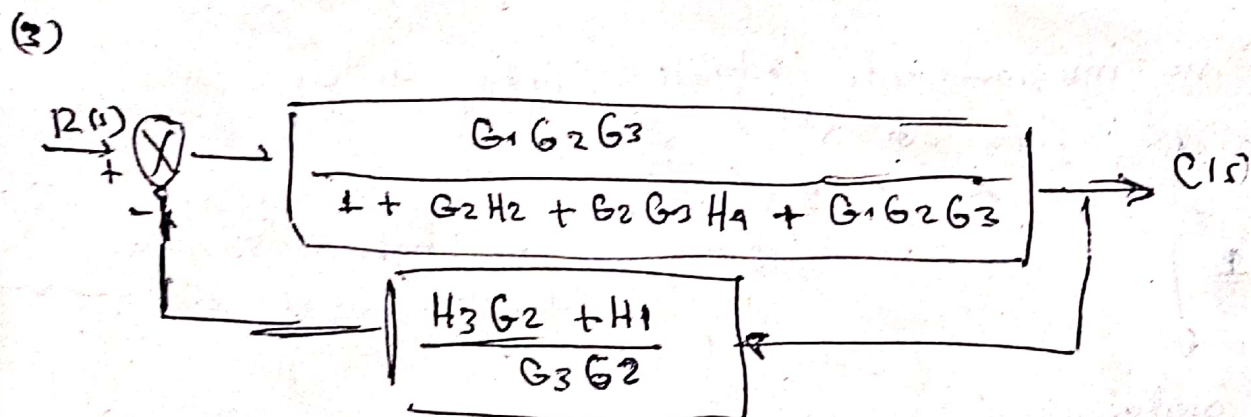 (3)
R(s)
+
-
G1 G2 G3
1 + G2 H2 + G2 G3 H4 + G1 G2 G3
C(s)
H3 G2 + H1
G3 G2